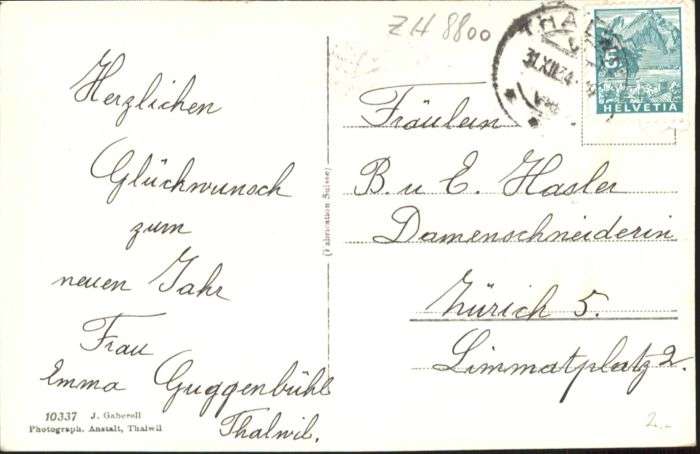 ZH 8800
THALWIL
31.XII.34
5
HELVETIA
Herzlichen
Glückwunsch
zum
neuen Jahr
Frau
Emma Guggenbühl
Thalwil.
10337 J. Gaberell
Photograph. Anstalt, Thalwil
(Fabrication Suisse)
Fräulein
B. u E. Hasler
Damenschneiderin
Zürich 5.
Limmatplatz 2.
2.-